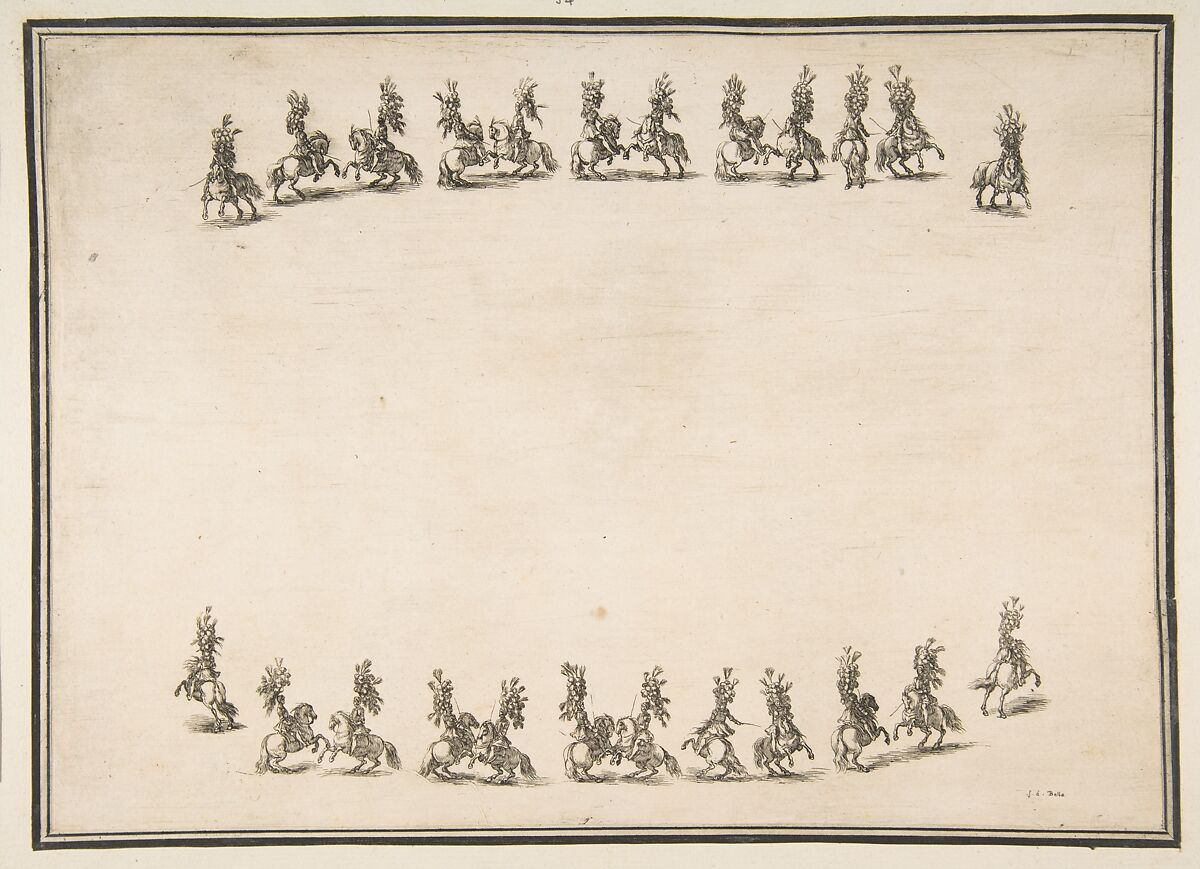 34
S. d. Bella
9